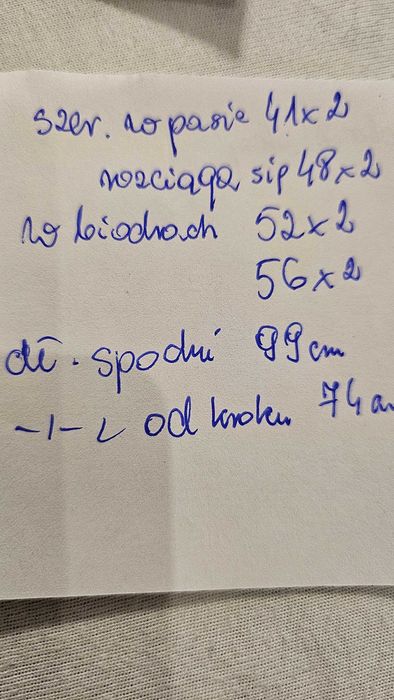 szer. w pasie 41x2
rozciąga się 48x2
w biodrach 52x2
56x2
dł. spodni 99cm
-1-2 od kroku 74 cm